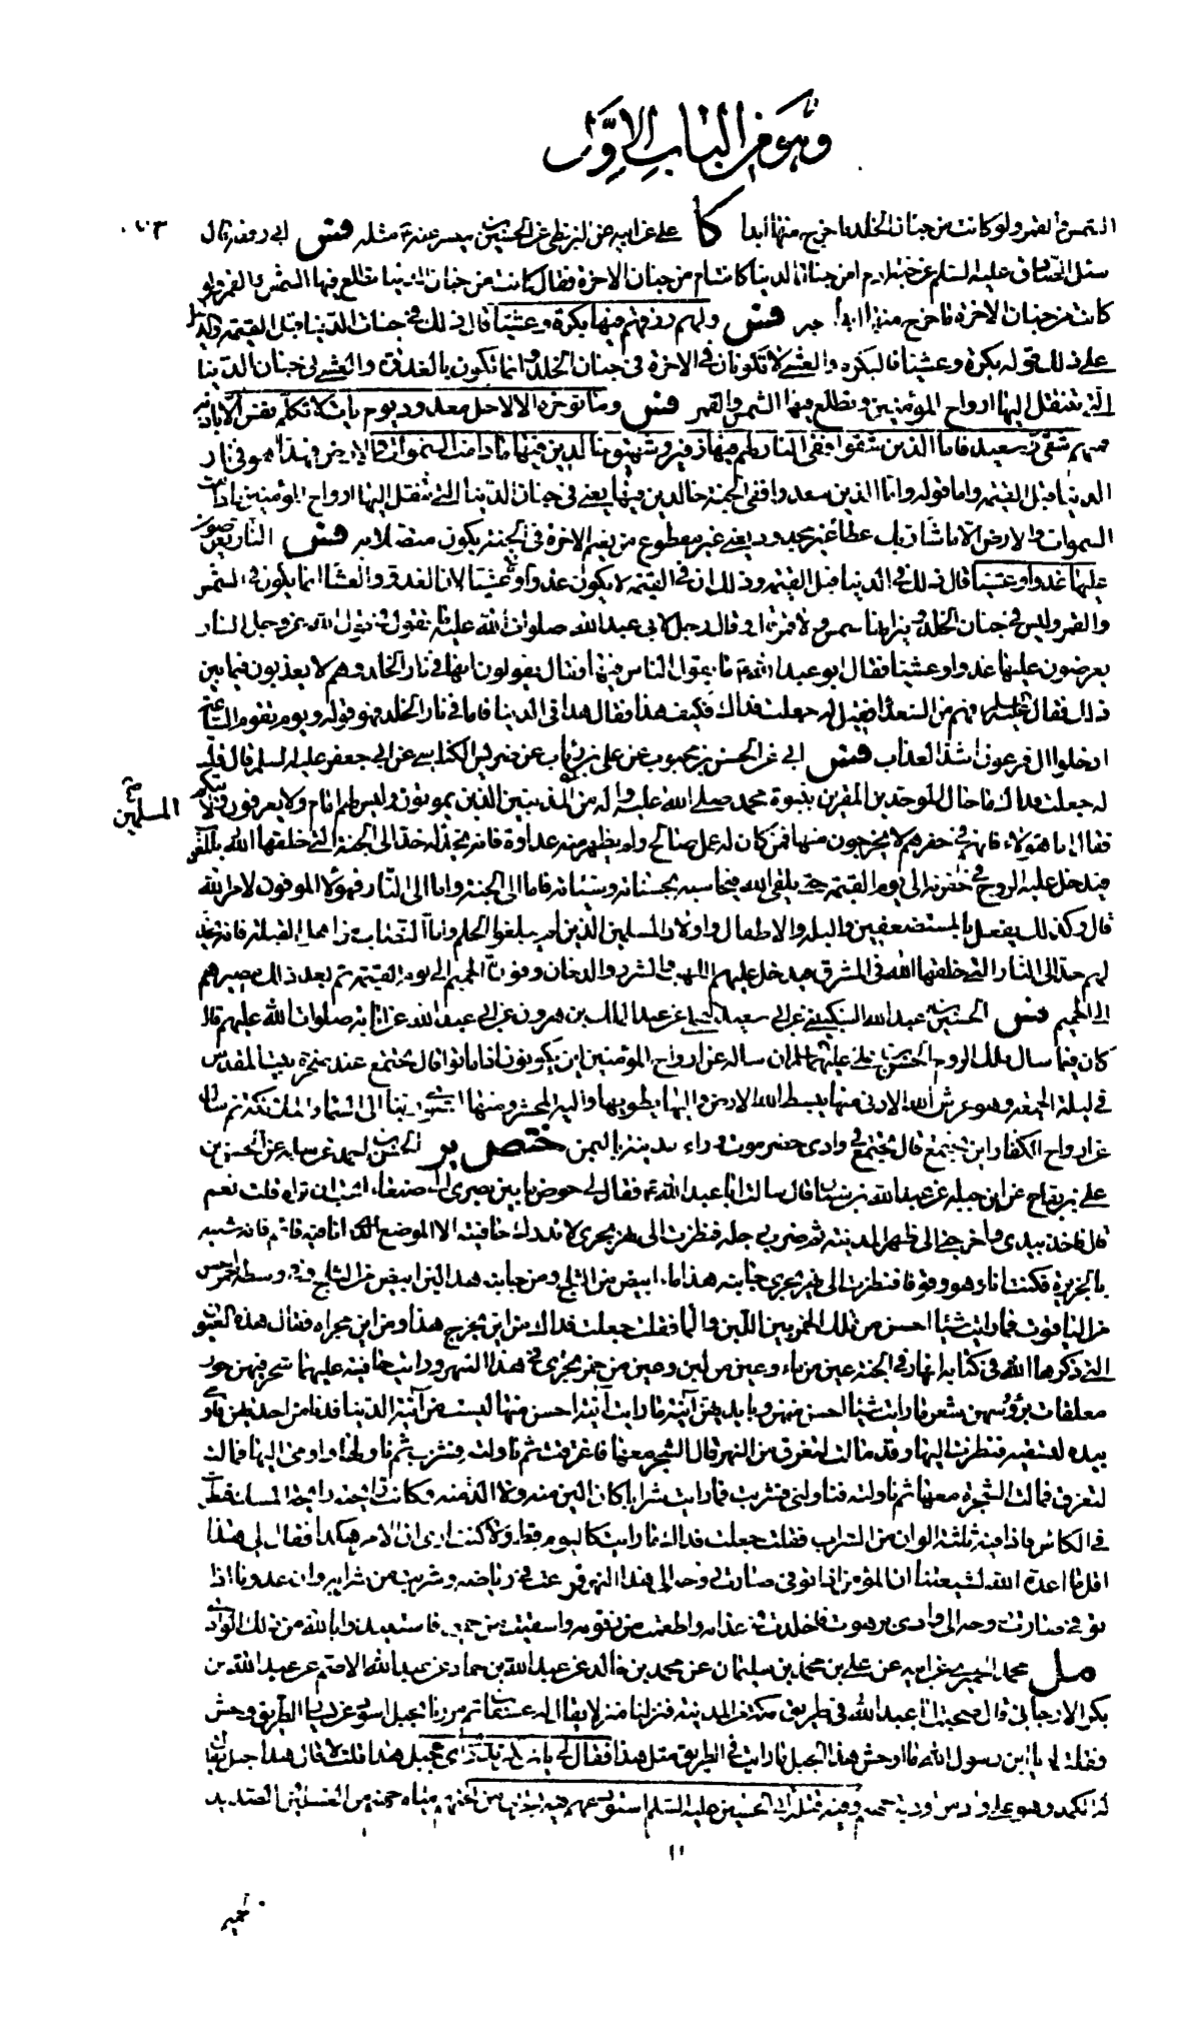 وهو من الباب الاول
الشمس والقمر ولو كانت من جنان الخلد ما خرج منها ابدا كا على عن ابيه عن البزنطي عن الحسين بن ميسر عنه ع مثله فس ابى رفعه قال
سئل الصادق عليه السلام عن جنة ادم امن جنان الدنيا كانت ام من جنان الاخرة فقال كانت من جنان الدنيا تطلع فيها الشمس والقمر ولو
كانت من جنان الاخرة ما خرج منها ابدا فس ولهم رزقهم فيها بكرة وعشيا قال ذلك في جنات الدنيا قبل القيمة والدليل
على ذلك قوله بكرة وعشيا فالبكرة والعشى لا تكونان في الاخرة في جنان الخلد وانما تكون بالغداة والعشى في جنان الدنيا
التى تنتقل اليها ارواح المؤمنين وتطلع فيها الشمس والقمر فس وما نؤخره الا لاجل معدود يوم يات لا تكلم نفس الا باذنه
فمنهم شقى وسعيد فاما الذين شقوا ففى النار لهم فيها زفير وشهيق خالدين فيها ما دامت السموات والارض فهذا هو في نار
الدنيا قبل القيمة واما قوله واما الذين سعدوا ففى الجنة خالدين فيها يعنى في جنان الدنيا التى تنتقل اليها ارواح المؤمنين ما دامت
السموات والارض الا ما شاء ربك عطاء غير مجذوذ يعنى غير مقطوع من نعيم الاخرة في الجنة يكون متصلا به فس النار يعرضون
عليها غدوا وعشيا قال ذلك في الدنيا قبل القيمة وذلك ان في القيمة لا يكون غدوا وعشيا لان الغدو والعشاء انما يكون في الشمس
والقمر وليس في جنان الخلد ونيرانها شمس ولا قمر قال وقال رجل لابى عبد الله صلوات الله عليه ما تقول في قول الله عز وجل النار
يعرضون عليها غدوا وعشيا فقال ابو عبد الله ع ما يقول الناس فيها فقال يقولون انها في نار الخلد وهم لا يعذبون فيما بين
ذلك فقال عليه السلام فهم من السعداء فقيل له جعلت فداك فكيف هذا فقال هذا في الدنيا فاما في نار الخلد فهو قوله ويوم تقوم الساعة
ادخلوا ال فرعون اشد العذاب فس ابى عن الحسن بن محبوب عن على بن رئاب عن ضريس الكناسى عن ابى جعفر عليه السلام قال قلت
له جعلت فداك ما حال الموحدين المقرين بنبوة محمد صلى الله عليه واله من المذنبين الذين يموتون وليس لهم امام ولا يعرفون ولايتكم
المسلمين صح
فقال اما هؤلاء فانهم في حفرهم لا يخرجون منها فمن كان له عمل صالح ولم يظهر منه عداوة فانه يخد له خدا الى الجنة التى خلقها الله بالمغرب
فيدخل عليه الروح في حفرته الى يوم القيمة حتى يلقى الله فيحاسبه بحسناته وسيئاته فاما الى الجنة واما الى النار فهؤلاء الموقوفون لامر الله
قال وكذلك يفعل بالمستضعفين والبله والاطفال واولاد المسلمين الذين لم يبلغوا الحلم واما النصاب من اهل القبلة فانه يخد
لهم خدا الى النار التى خلقها الله في المشرق فيدخل عليهم اللهب والشرر والدخان وفورة الحميم الى يوم القيمة ثم بعد ذلك مصيرهم
الى الحميم فس الحسين بن عبد الله السكينى عن ابى سعيد البجلى عن عبد الملك بن هرون عن ابى عبد الله عن ابائه صلوات الله عليهم قال
كان فيما سال ملك الروم الحسن بن على عليهما السلام ان ساله عن ارواح المؤمنين اين يكونون اذا ماتوا قال تجتمع عند صخرة بيت المقدس
في ليلة الجمعة وهو عرش الله الادنى منها يبسط الله الارض واليها يطويها واليه المحشر ومنها استوى ربنا الى السماء والملئكة ثم ساله
عن ارواح الكفار اين تجتمع قال تجتمع في وادى حضرموت وراء مدينة باليمن ختص ير الحسن بن احمد عن سلمة عن الحسن بن
على بن بقاح عن ابن جبلة عن عبد الله بن سنان قال سالت ابا عبد الله ع فقال لى حوض ما بين بصرى الى صنعاء اتحب ان تراه قلت نعم
قال فاخذ بيدى واخرجنى الى ظهر المدينة ثم ضرب برجله فنظرت الى نهر يجرى لا تدرك حافتيه الا الموضع الذى انا فيه قائم فانه شبيه
بالجزيرة فكنت انا وهو وقوفا فنظرت الى نهر يجرى جانبه هذا ماء ابيض من الثلج ومن جانبه هذا لبن ابيض من الثلج وفى وسطه خمر احسن
من الياقوت فما رايت شيئا احسن من تلك الخمر بين اللبن والماء فقلت جعلت فداك من اين يخرج هذا ومن اين مجراه فقال هذه العيون
التى ذكرها الله في كتابه انهار في الجنة عين من ماء وعين من لبن وعين من خمر يجرى في هذا النهر ورايت حافتيه عليهما شجر فيهن حور
معلقات برؤسهن شعر ما رايت شيئا احسن منهن وبايديهن انية ما رايت انية احسن منها ليست من انية الدنيا فدنا من احديهن فاومى
بيده لتسقيه فنظرت اليها وقد مالت لتغرف من النهر فمال الشجر معها فاغترفت ثم ناولته فشرب ثم ناولها واومى اليها فمالت
لتغرف فمالت الشجرة معها ثم ناولته فناولنى فشربت فما رايت شرابا كان الين منه ولا الذ منه وكانت رائحته رائحة المسك فنظرت
في الكاس فاذا فيه ثلثة الوان من الشراب فقلت جعلت فداك ما رايت كاليوم قط ولا كنت ارى ان الامر هكذا فقال لى هذا
اقل ما اعده الله لشيعتنا ان المؤمن اذا توفى صارت روحه الى هذا النهر ورعت في رياضه وشربت من شرابه وان عدونا اذا
توفى صارت روحه الى وادى برهوت فاخلدت في عذابه واطعمت من زقومه واسقيت من حميمه فاستعيذوا بالله من ذلك الوادى
مل محمد الحميرى عن ابيه عن على بن محمد بن سليمان عن محمد بن خالد عن عبد الله بن حماد عن عبد الله الاصم عن عبد الله بن
بكر الارجانى قال صحبت ابا عبد الله في طريق مكة من المدينة فنزلنا منزلا يقال له عسفان ثم مررنا بجبل اسود عن يسار الطريق وحش
فقلت له يا ابن رسول الله ما اوحش هذا الجبل ما رايت في الطريق مثل هذا فقال لى يا ابن بكر تدرى اى جبل هذا قلت لا قال هذا جبل يقال
له الكمد وهو على واد من اودية جهنم وفيه قتلة ابى الحسين عليه السلام استودعهم فيه تجرى من تحتهم مياه جهنم من الغسلين والصديد
١١